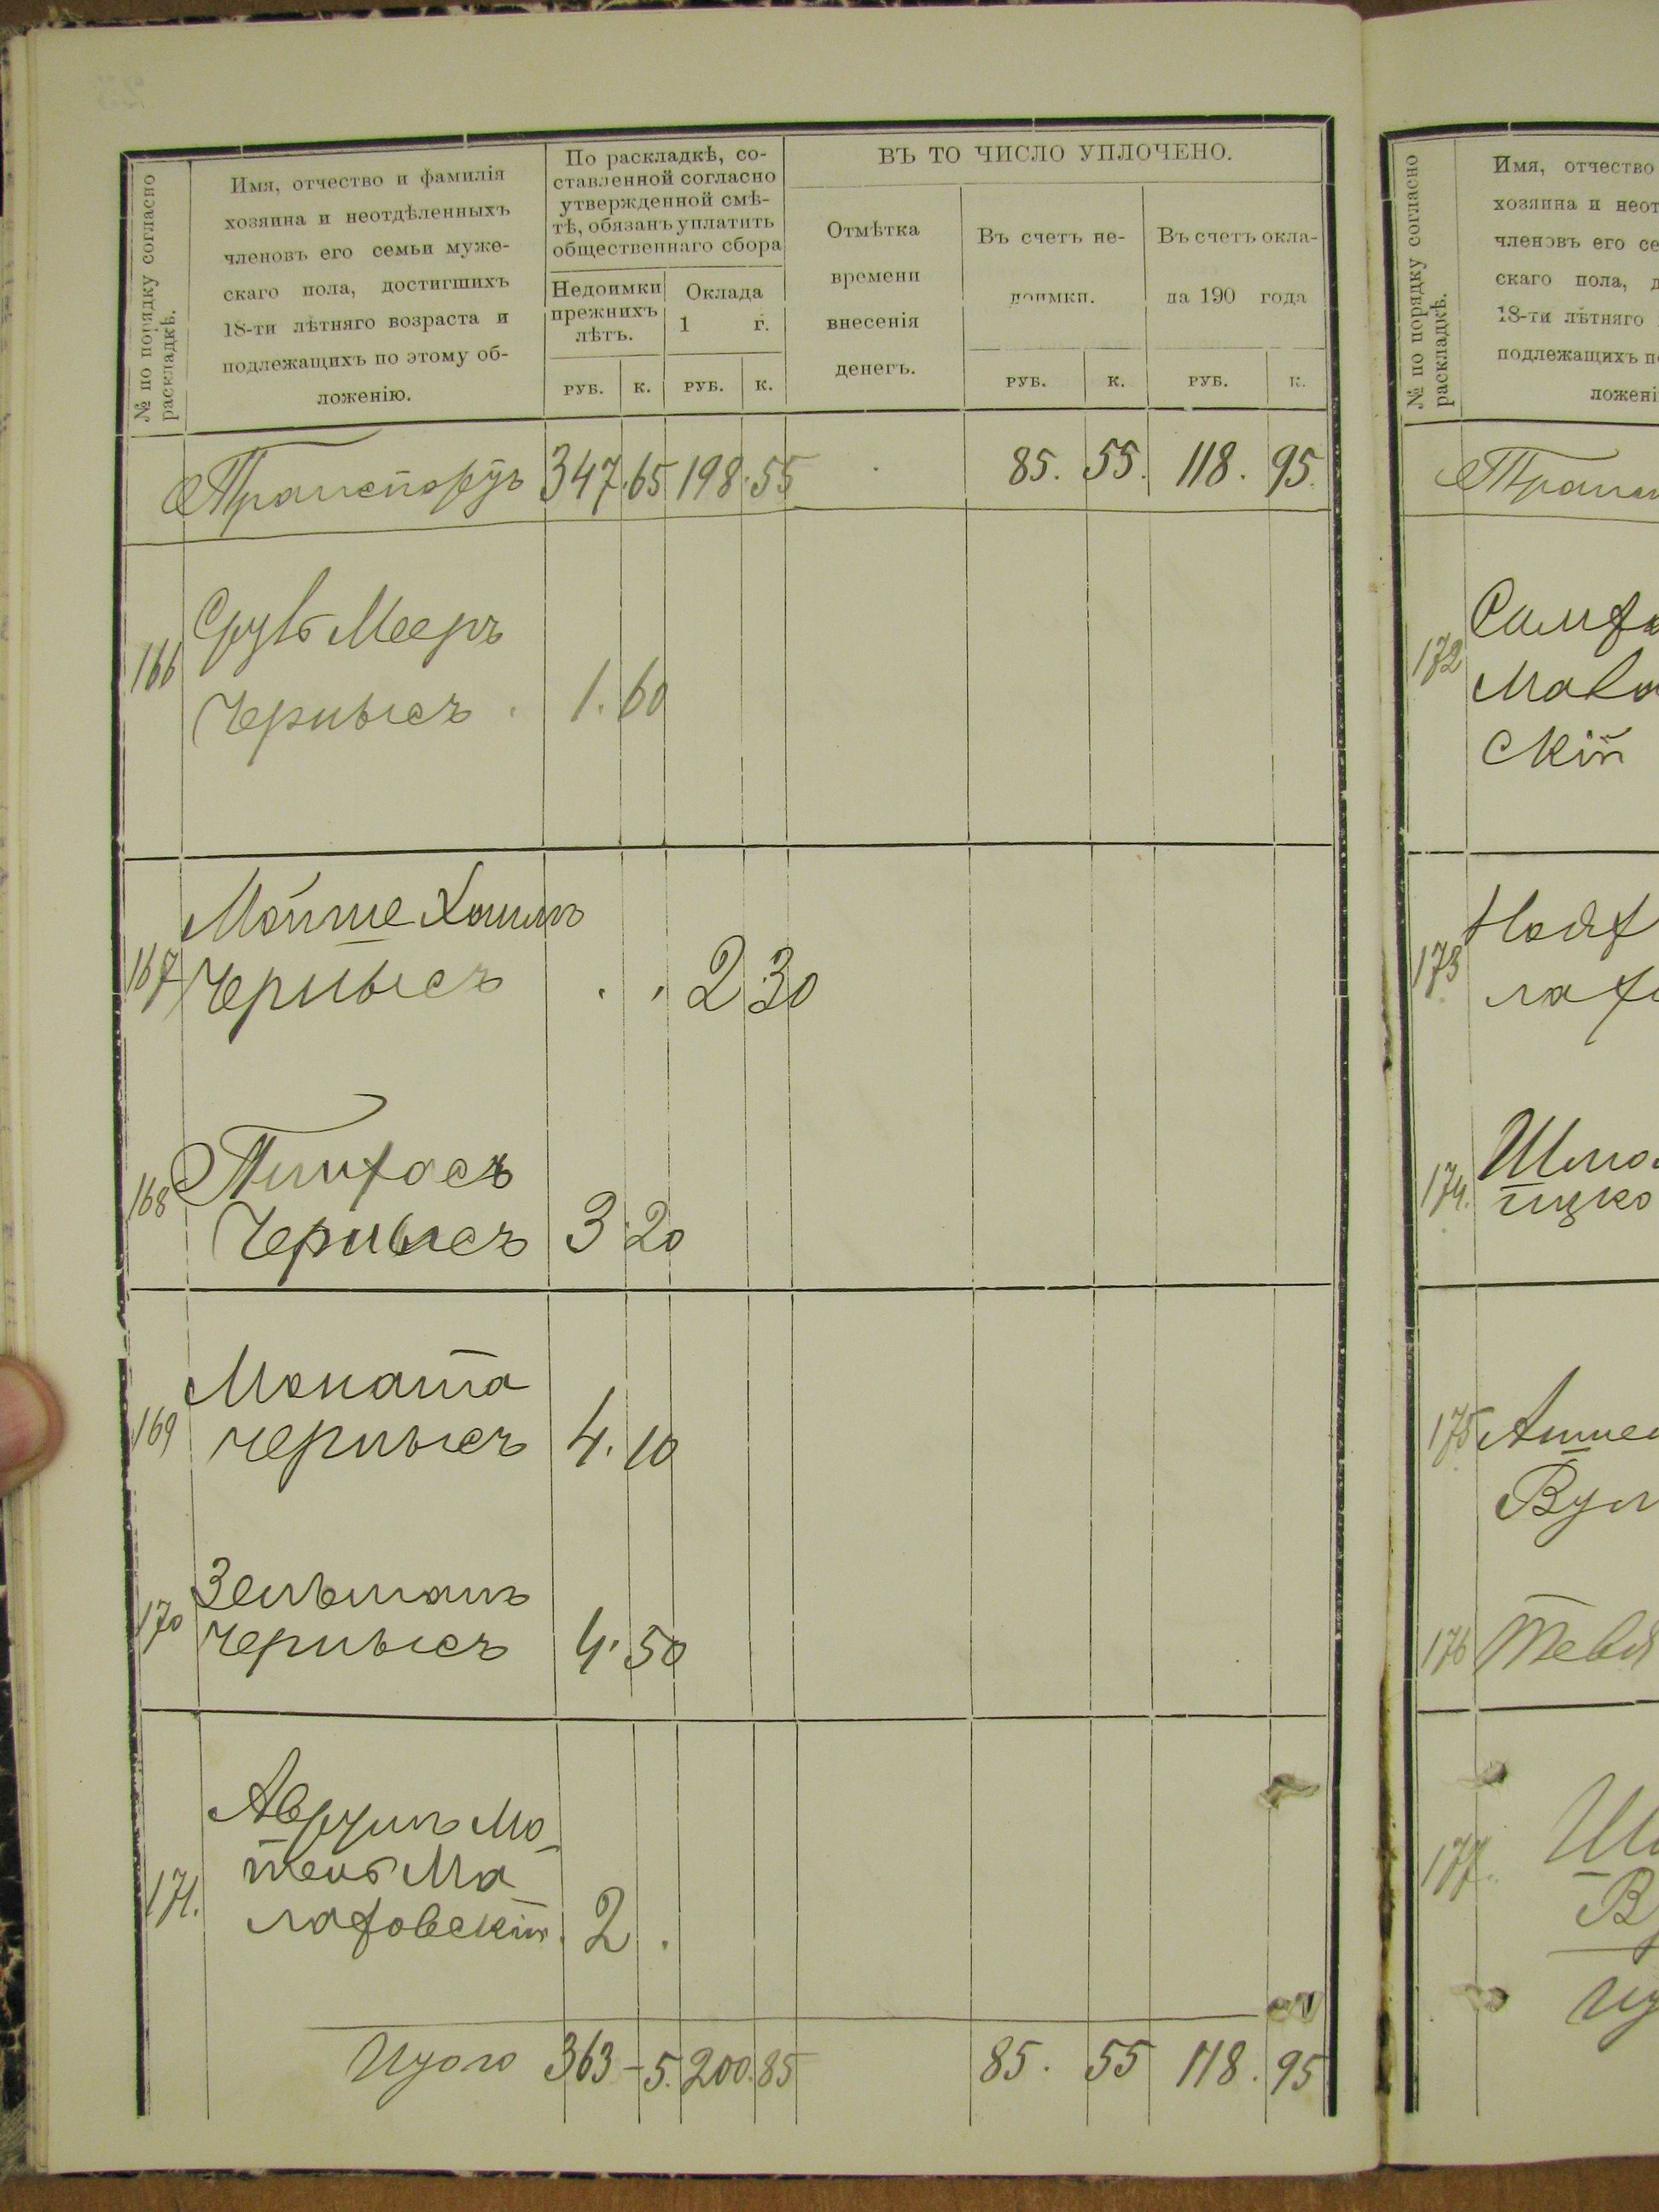 № по порядку согласно
раскладкѣ.
Имя, отчество и фамилія
хозяина и неотдѣленныхъ
членовъ его семьи муже-
скаго пола, достигшихъ
18-ти лѣтняго возраста и
подлежащихъ по этому об-
ложенію.
По раскладкѣ, со-
ставленной согласно
утвержденной смѣ-
тѣ, обязанъ уплатить
общественнаго сбора
Недоимки
прежнихъ
лѣтъ.
Оклада
1 г.
РУБ. К. РУБ. К.
ВЪ ТО ЧИСЛО УПЛОЧЕНО.
Отмѣтка
времени
внесенія
денегъ.
Въ счетъ не-
доимки.
Въ счетъ окла-
да 190 года
РУБ. К. РУБ. К.
Транспортъ 347.65 198.55 85. 55. 118. 95.
166 Мееръ
Чернысъ 1.60
167 Мойше Хаимъ
Чернысъ 2 30
168 Пинхасъ
Чернысъ 3 20
169 Моната
Чернысъ 4.10
170 Зельманъ
Чернысъ 4.50
171. Аврумъ Мо-
тель Ма
лаховскій. 2.
Итого 363-5. 200.85 85. 55 118. 95
№ по порядку согласно
раскладкѣ.
Имя, отчество
хозяина и неот
членовъ его се
скаго пола, д
18-ти лѣтняго
подлежащихъ п
ложені
Транс
172
скій
173
174.
175
176 Тевя
177.